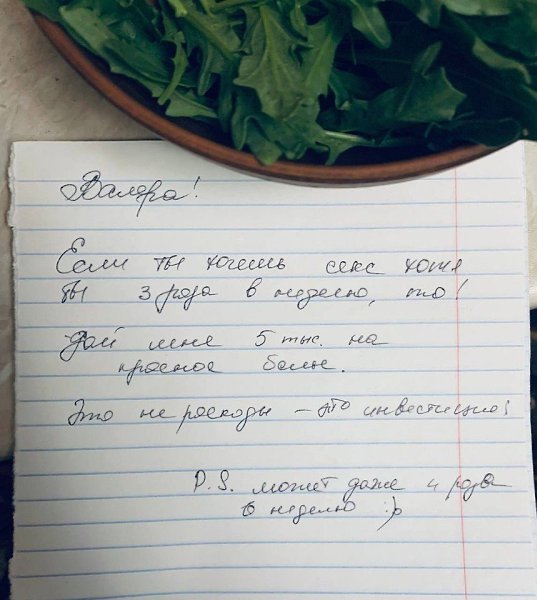 Валера!
Если ты хочешь секс хотя
бы 3 раза в неделю, то!
Дай мне 5 тыс. на
красное белье.
Это не расходы – это инвестиции!
P.S. может даже 4 раза
в неделю :)